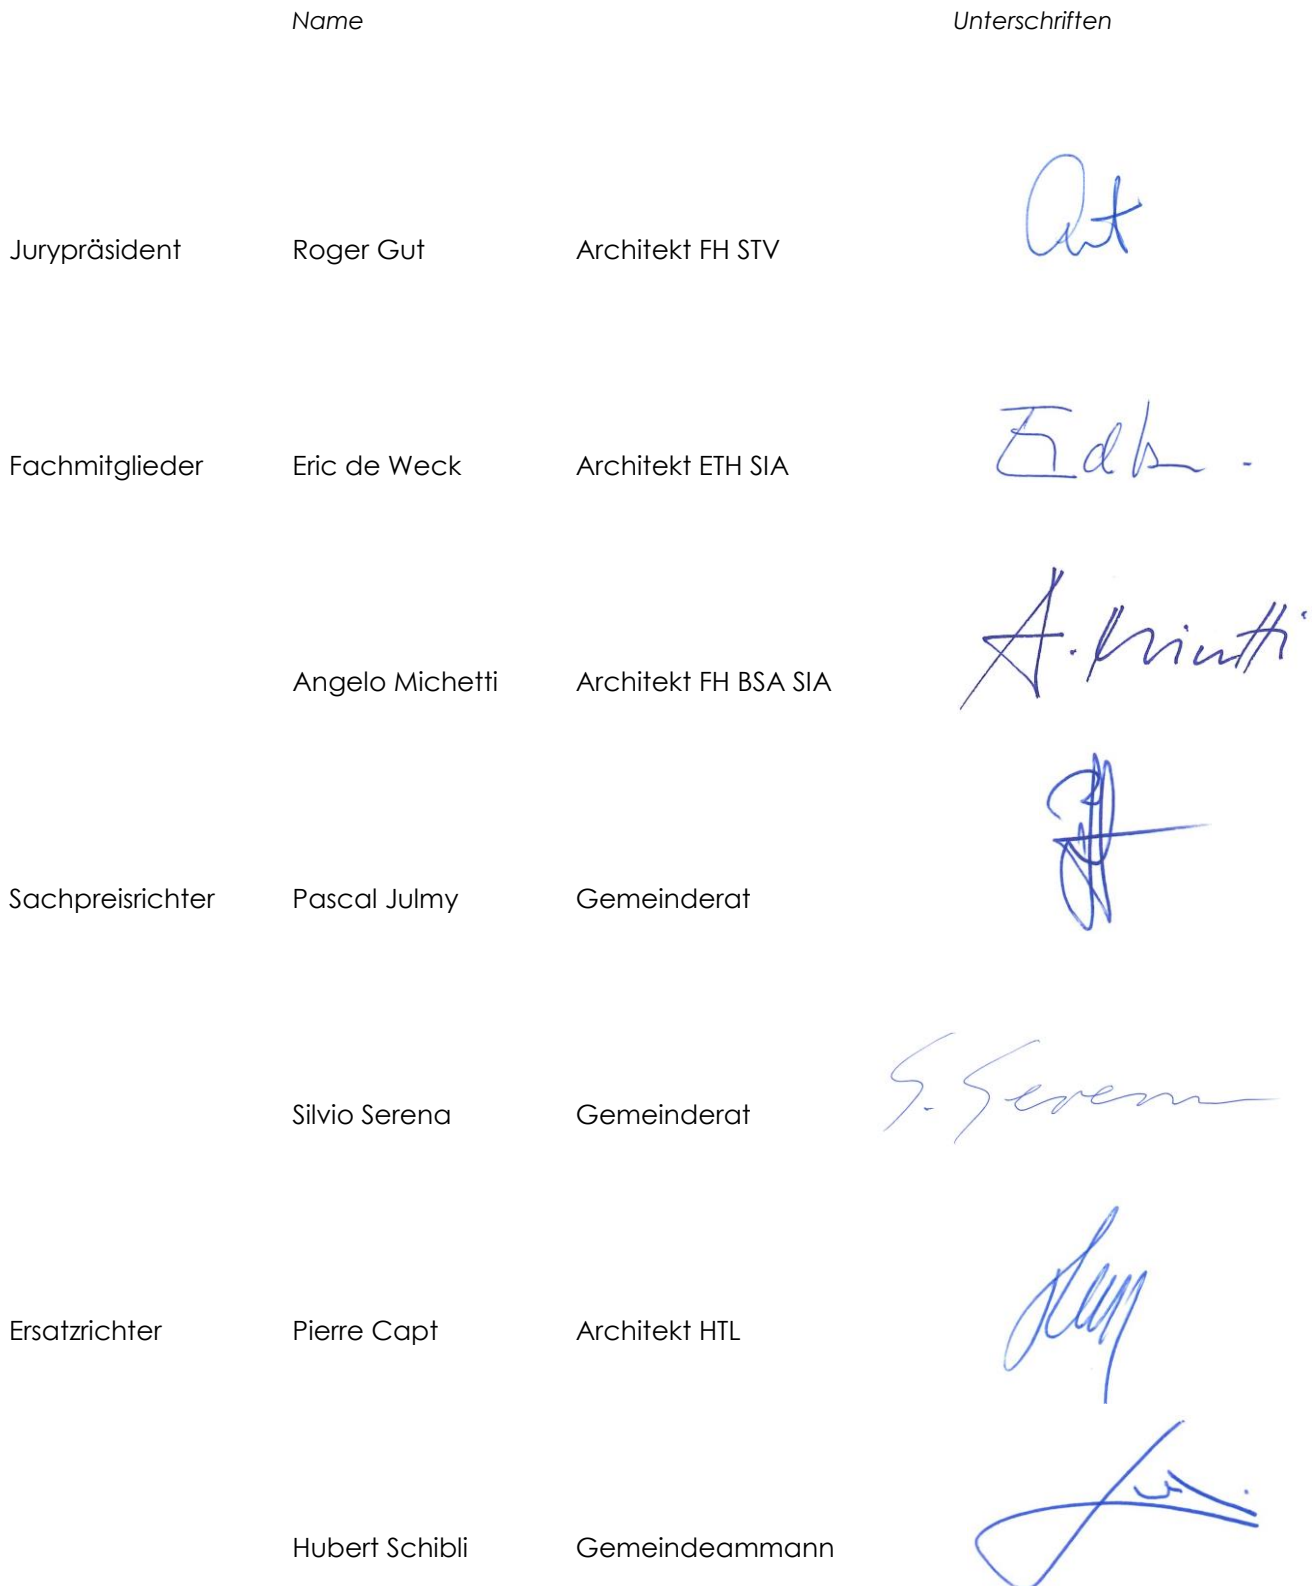 Name Unterschriften
Jurypräsident Roger Gut Architekt FH STV
Fachmitglieder Eric de Weck Architekt ETH SIA
Angelo Michetti Architekt FH BSA SIA
Sachpreisrichter Pascal Julmy Gemeinderat
Silvio Serena Gemeinderat S. Serena
Ersatzrichter Pierre Capt Architekt HTL
Hubert Schibli Gemeindeammann